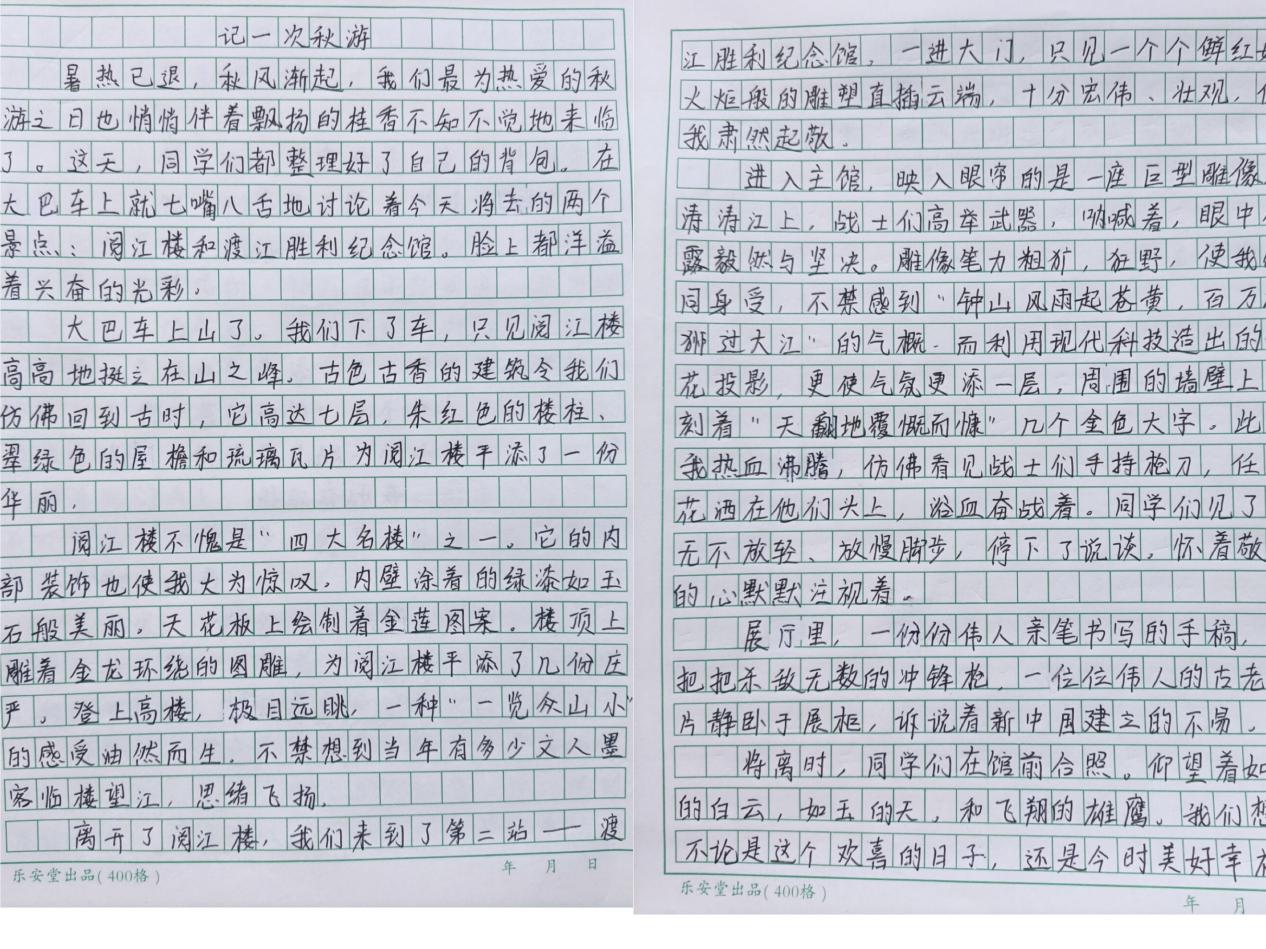 记一次秋游
暑热已退，秋风渐起，我们最为热爱的秋
游之日也悄悄伴着飘扬的桂香不知不觉地来临
了。这天，同学们都整理好了自己的背包。在
大巴车上就七嘴八舌地讨论着今天将去的两个
景点：阅江楼和渡江胜利纪念馆。脸上都洋溢
着兴奋的光彩。
大巴车上山了。我们下了车，只见阅江楼
高高地挺立在山之峰。古色古香的建筑令我们
仿佛回到古时，它高达七层，朱红色的楼柱、
翠绿色的屋檐和琉璃瓦片为阅江楼平添了一份
华丽。
阅江楼不愧是“四大名楼”之一。它的内
部装饰也使我大为惊叹。内壁涂着的绿漆如玉
石般美丽。天花板上绘制着金莲图案。楼顶上
雕着金龙环绕的图雕，为阅江楼平添了几份庄
严。登上高楼，极目远眺，一种“一览众山小”
的感受油然而生。不禁想到当年有多少文人墨
客临楼望江，思绪飞扬。
离开了阅江楼，我们来到了第二站——渡
乐安堂出品(400格) 年 月 日
江胜利纪念馆。一进大门，只见一个个鲜红
火炬般的雕塑直插云端，十分宏伟、壮观，
我肃然起敬。
进入主馆，映入眼帘的是一座巨型雕像
涛涛江上，战士们高举武器，呐喊着，眼中
露毅然与坚决。雕像笔力粗犷，狂野，使我
同身受，不禁感到“钟山风雨起苍黄，百万
狮过大江”的气概。而利用现代科技造出的
花投影，更使气氛更添一层，周围的墙壁上
刻着“天翻地覆慨而慷”几个金色大字。此
我热血沸腾，仿佛看见战士们手持枪刀，任
花洒在他们头上，浴血奋战着。同学们见了
无不放轻、放慢脚步，停下了说谈，怀着敬
的心默默注视着。
展厅里，一份份伟人亲笔书写的手稿，
把把杀敌无数的冲锋枪，一位位伟人的古老
片静卧于展柜，诉说着新中国建立的不易。
将离时，同学们在馆前合照。仰望着如
的白云，如玉的天，和飞翔的雄鹰。我们想
不论是这个欢喜的日子，还是今时美好幸
乐安堂出品(400格) 年 月